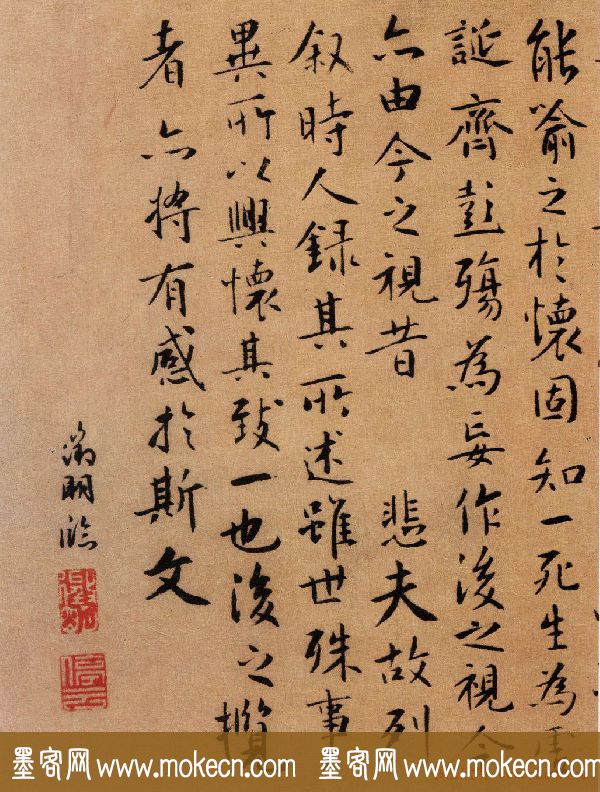 能喻之於懷固知一死生為虛
誕齊彭殤為妄作後之視今
亦由今之視昔　悲夫故列
叙時人錄其所述雖世殊事
異所以興懷其致一也後之攬
者亦將有感於斯文
徵明臨
墨客网 www.mokecn.com 墨客网 www.mokecn.com